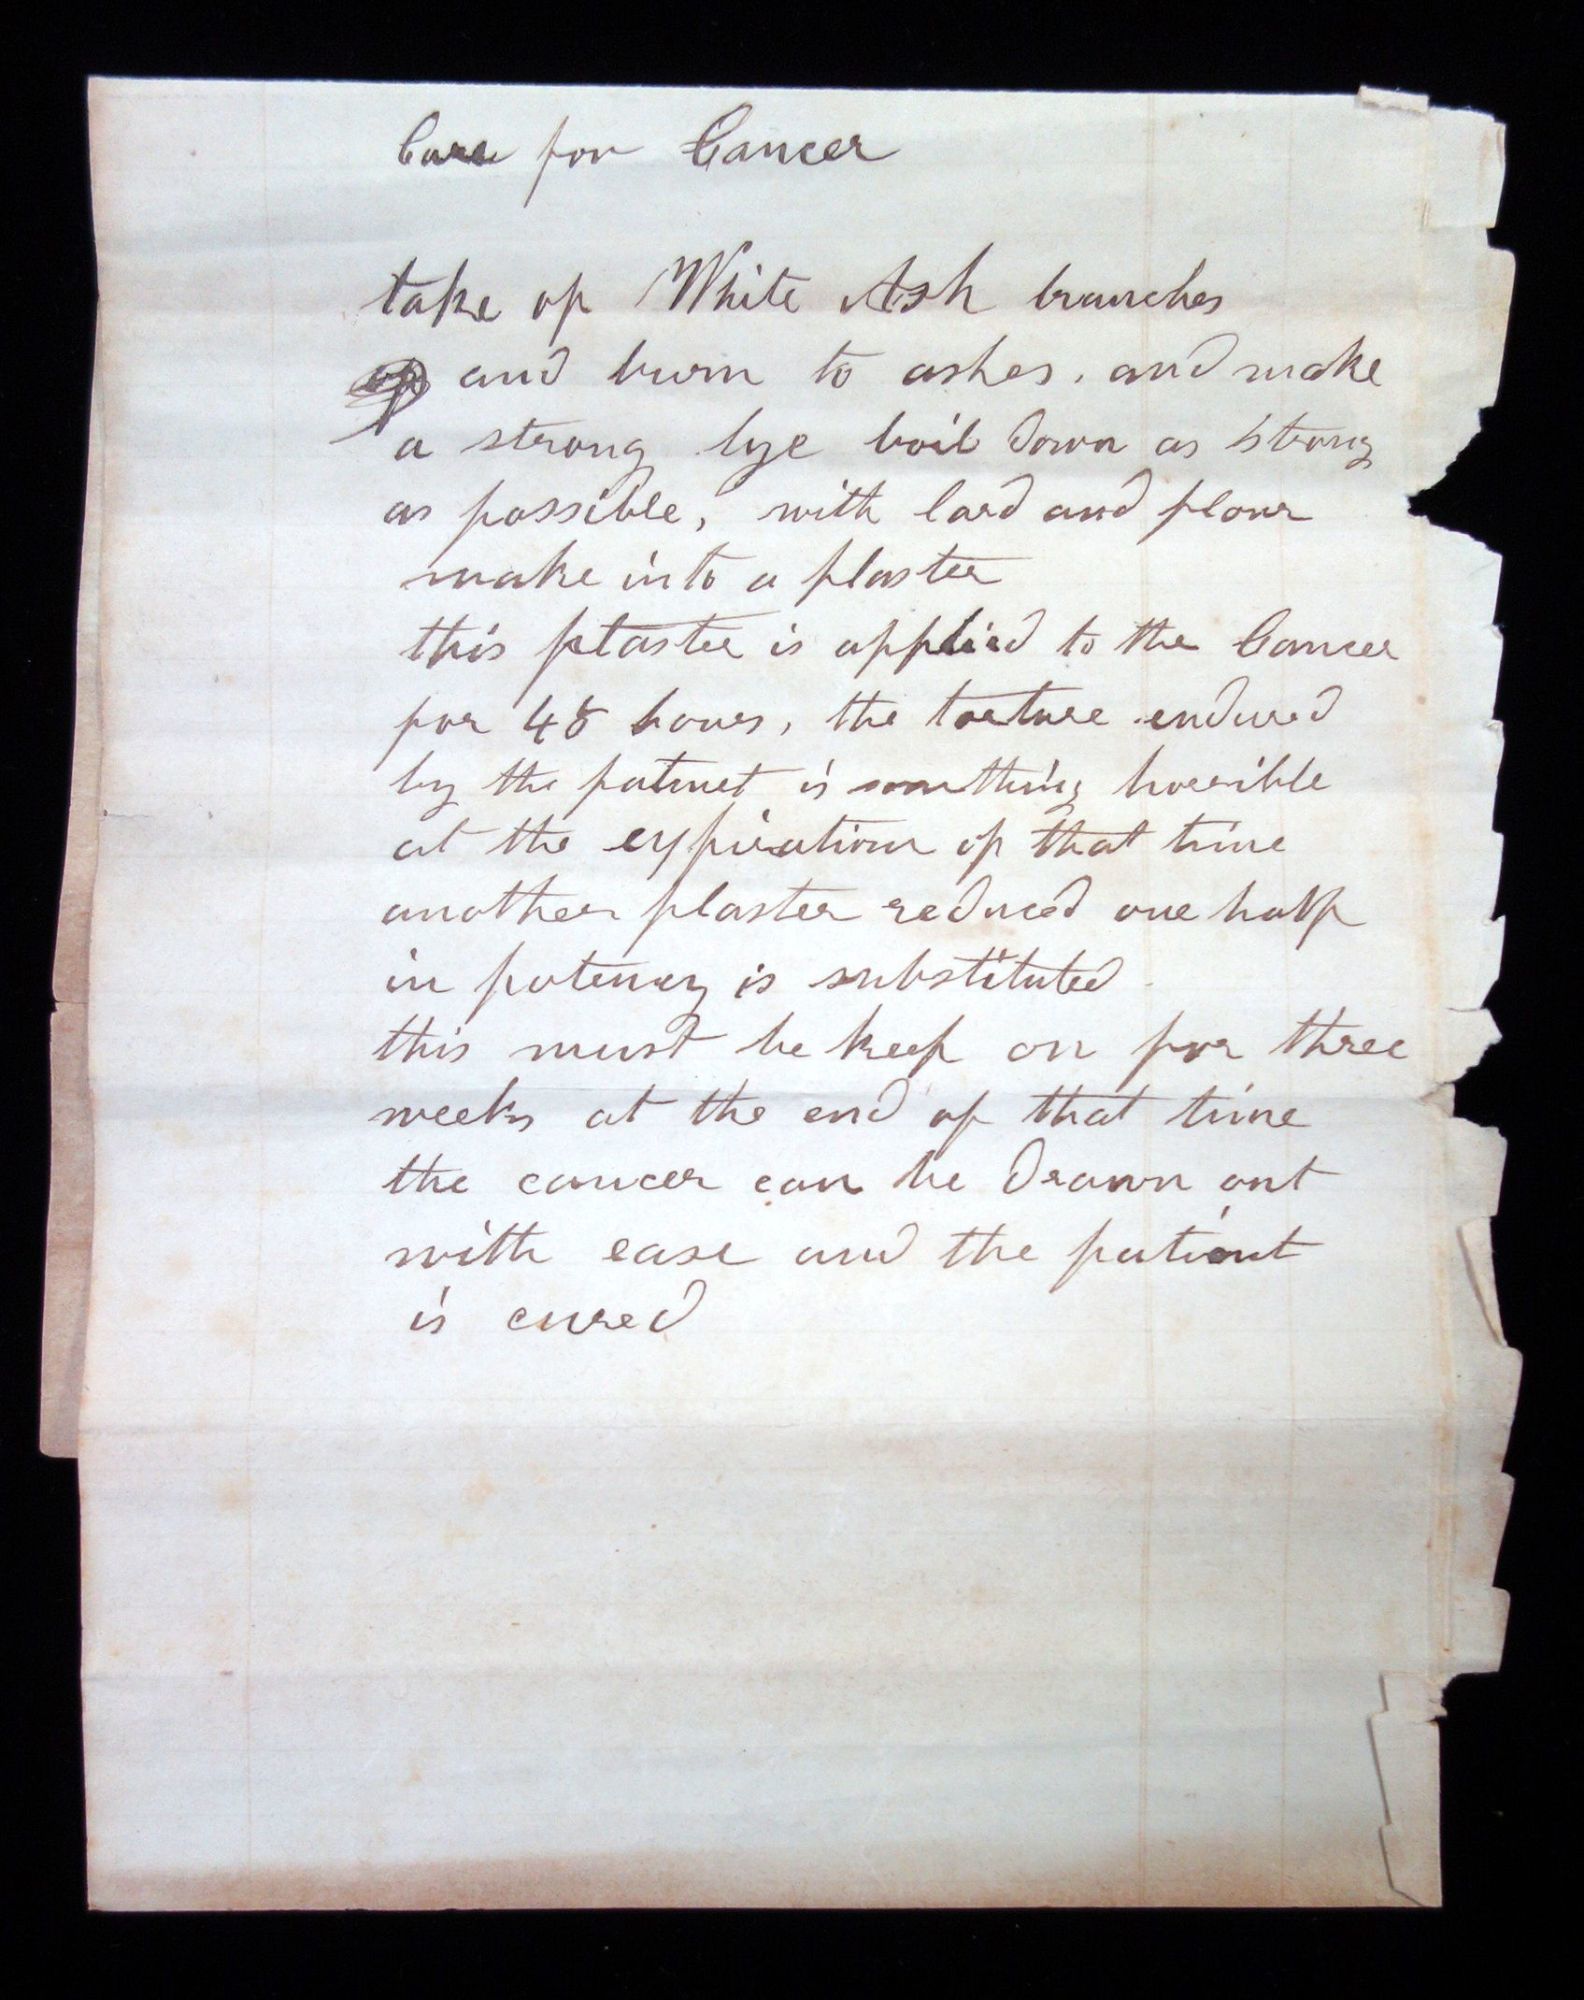 Cure for Cancer
take of White Ash branches
and burn to ashes. and make
a strong lye boil down as strong
as possible, with lard and flour
make into a plaster
this plaster is applied to the Cancer
for 48 hours, the torture endured
by the patient is something horrible
at the expiration of that time
another plaster reduced one half
in potency is substituted
this must be keep on for three
weeks at the end of that time
the cancer can be drawn out
with ease and the patient
is cured